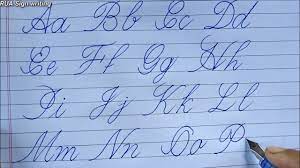 RUA Sign writing
Aa Bb Cc Dd
Ee Ff Gg Hh
Ii Jj Kk Ll
Mm Nn Oo P